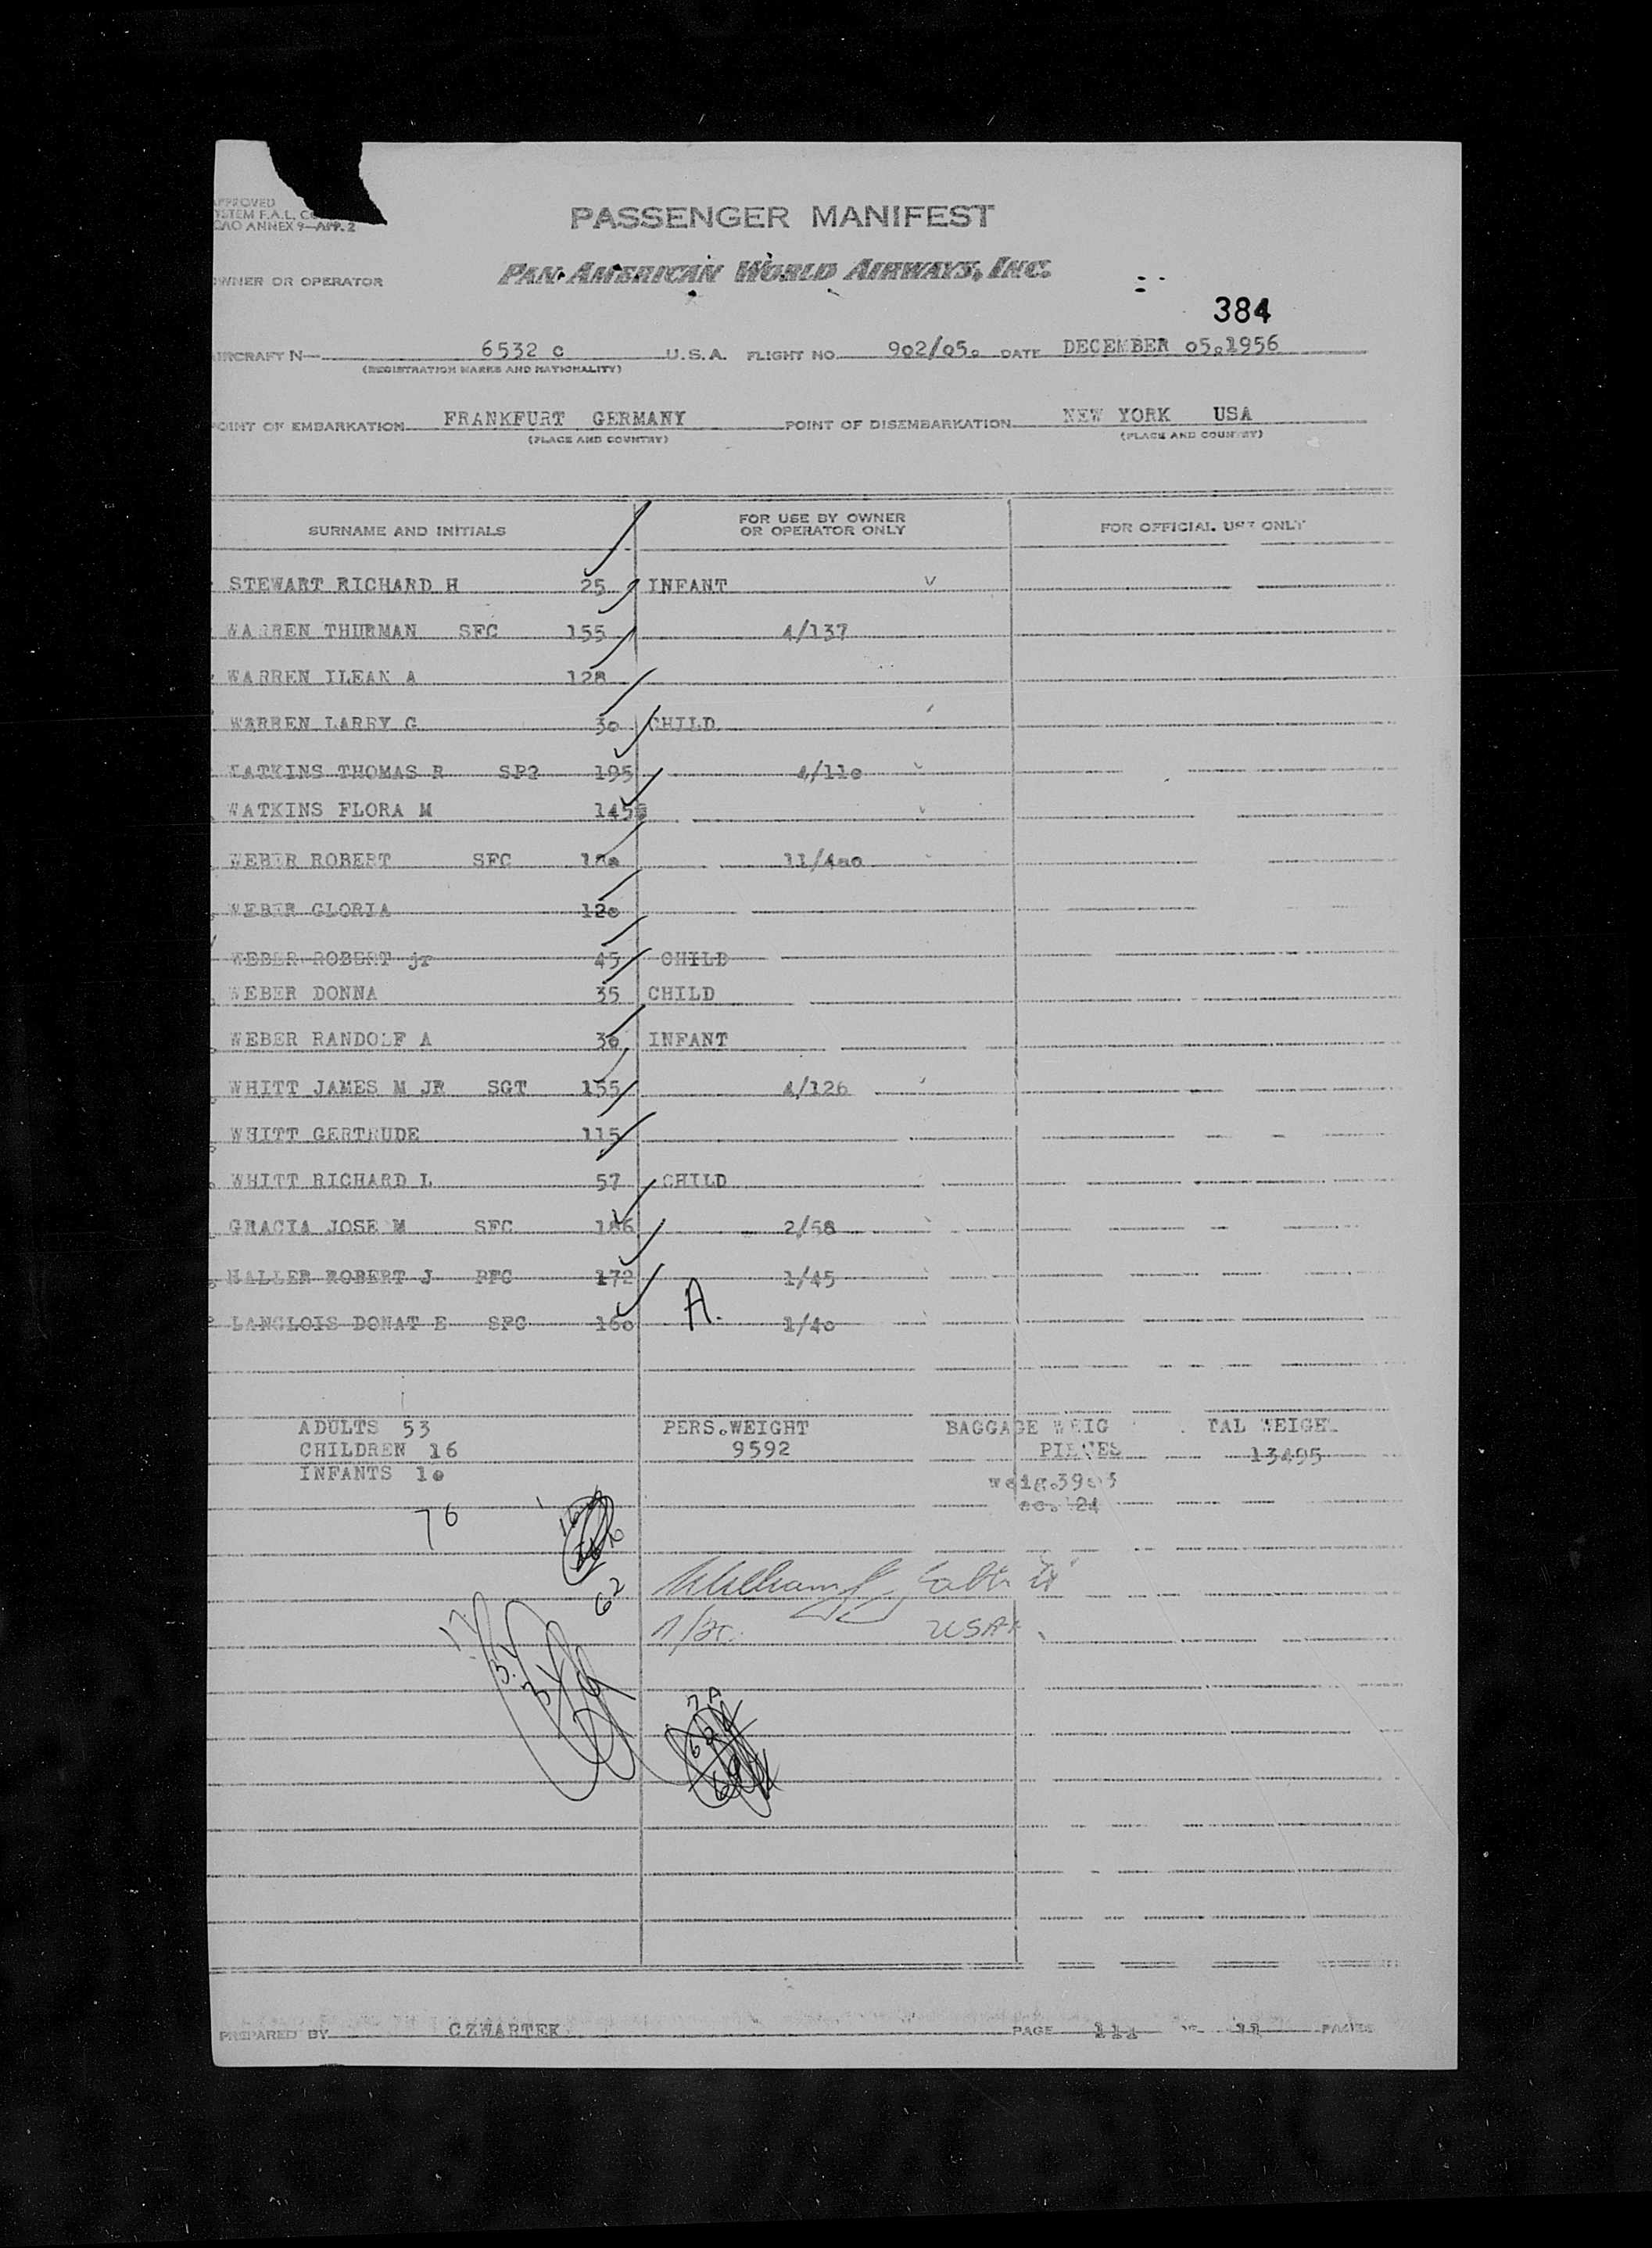 PASSENGER MANIFEST
APPROVED
SYSTEM F.A.L.
ICAO ANNEX 9—APP. 2
OWNER OR OPERATOR PAN AMERICAN WORLD AIRWAYS, INC.
384
AIRCRAFT N— 6532 c U.S.A. FLIGHT NO. 9o2/o5. DATE DECEMBER o5.1956
(REGISTRATION MARKS AND NATIONALITY)
POINT OF EMBARKATION FRANKFURT GERMANY POINT OF DISEMBARKATION NEW YORK USA
(PLACE AND COUNTRY) (PLACE AND COUNTRY)
SURNAME AND INITIALS FOR USE BY OWNER OR OPERATOR ONLY FOR OFFICIAL USE ONLY
STEWART RICHARD H 25 INFANT
WARREN THURMAN SFC 155 4/137
WARREN ILEAN A 128
WARREN LARRY G 3o CHILD
WATKINS THOMAS R SP2 195 4/11o
WATKINS FLORA M 145
WEBER ROBERT SFC 11/4oo
WEBER GLORIA 12o
WEBER ROBERT jr 45 CHILD
WEBER DONNA 35 CHILD
WEBER RANDOLF A 3o INFANT
WHITT JAMES M JR SGT 155 4/126
WHITT GERTRUDE 115
WHITT RICHARD L 57 CHILD
GRACIA JOSE M SFC 186 2/58
HALLER ROBERT J PFC 172 1/45
LANGLOIS DONAT E SFC 16o A. 1/4o
ADULTS 53 PERS.WEIGHT BAGGAGE WEIG TAL WEIGH
CHILDREN 16 9592 PIECES 13495
INFANTS 1o weig.39o3
24
76
62
William
USAF
PREPARED BY CZWARTEK PAGE 111 OF 11 PAGES